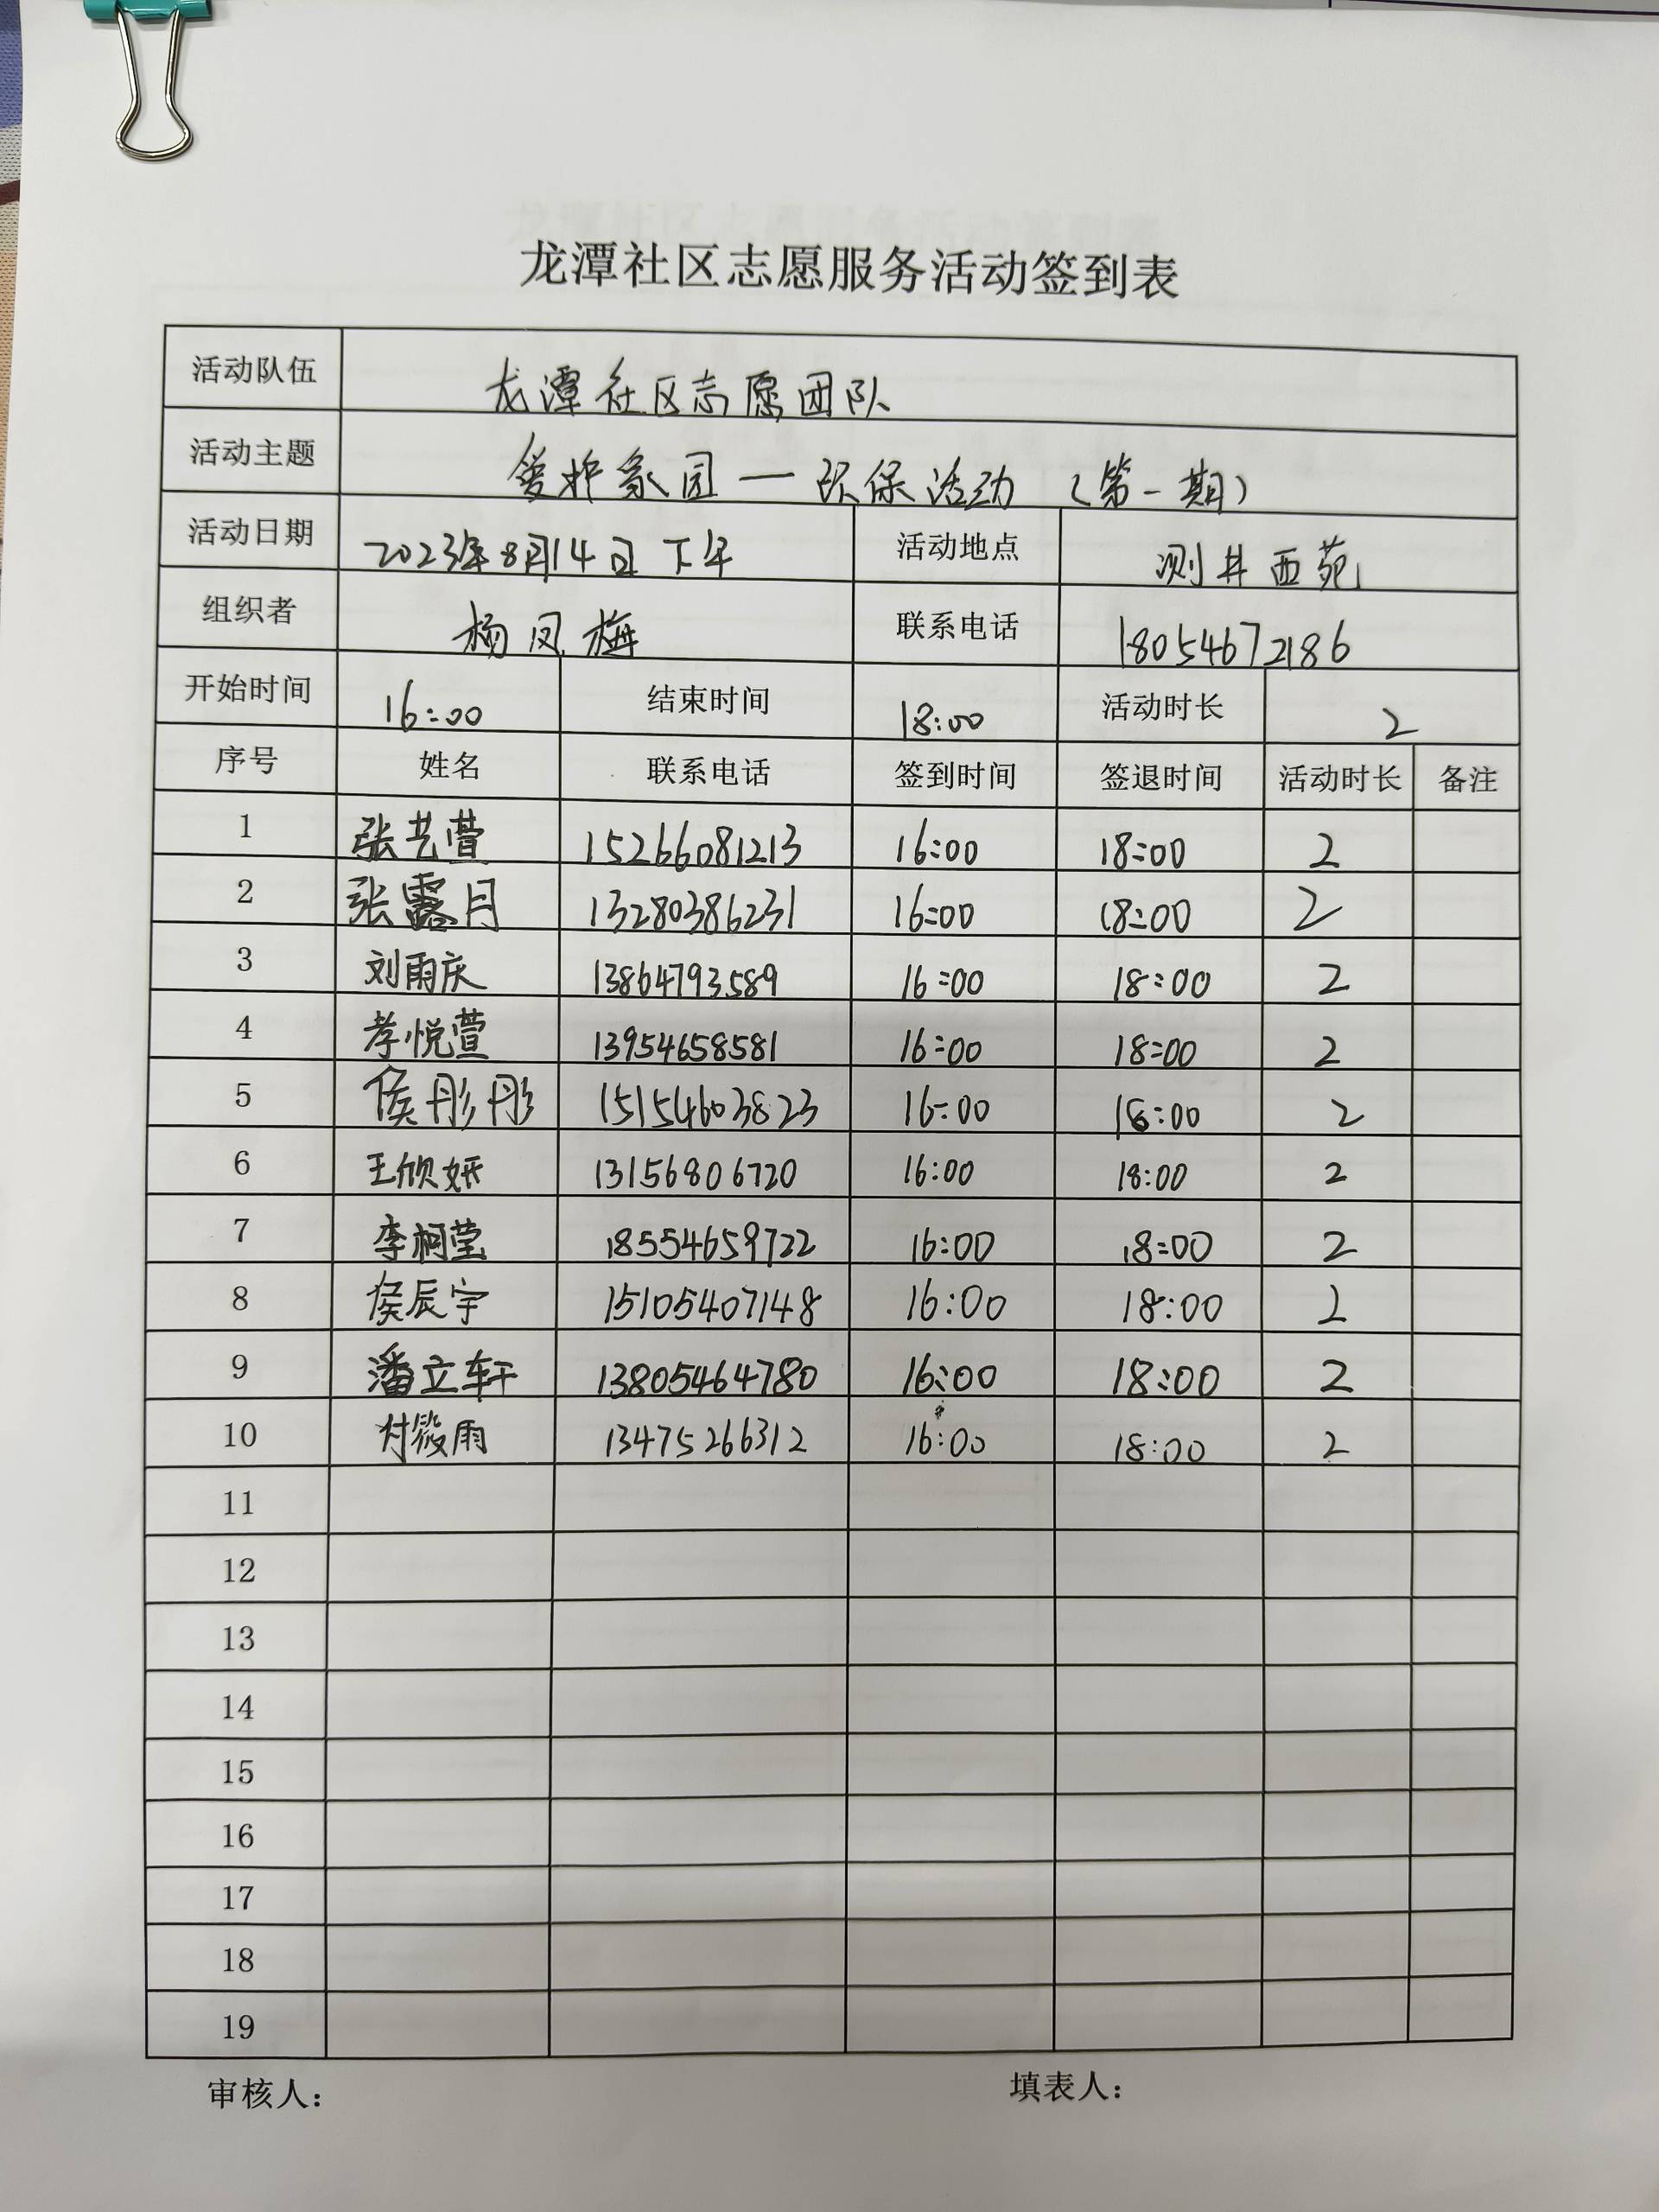 龙潭社区志愿服务活动签到表
活动队伍 龙潭社区志愿团队
活动主题 爱护家园一环保活动（第一期）
活动日期 2023年8月14日下午 活动地点 测井西苑
组织者 杨凤梅 联系电话 18054672186
开始时间 16:00 结束时间 18:00 活动时长 2
序号 姓名 联系电话 签到时间 签退时间 活动时长 备注
1 张艺萱 15266081213 16:00 18:00 2
2 张露月 13280386231 16:00 18:00 2
3 刘雨庆 13864793589 16:00 18:00 2
4 李悦萱 13954658581 16:00 18:00 2
5 侯彤彤 15154603823 16:00 18:00 2
6 王欣妍 13156806720 16:00 18:00 2
7 李柯莹 18554659722 16:00 18:00 2
8 侯辰宇 15105407148 16:00 18:00 2
9 潘立轩 13805464780 16:00 18:00 2
10 付筱雨 13475266312 16:00 18:00 2
11
12
13
14
15
16
17
18
19
审核人： 填表人：